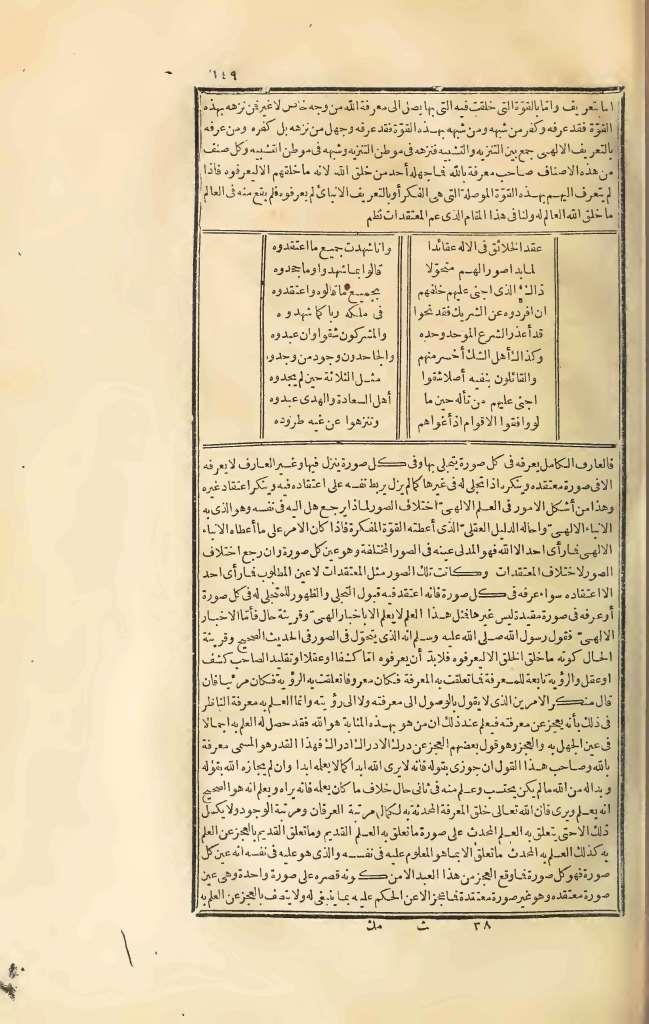 ١٤٩
امابتعريف وامابالقوّة التى خلقت فيه التى بهايصل الى معرفة الله من وجه خاص لاغيرفمن نزهه بهذه
القوّة فقد عرفه وكفر من شبهه ومن شبهه بهذه القوّة فقد عرفه وجهل من نزهه بل كفره ومن عرفه
بالتعريف الالهى جمع بين التنزيه والتشبيه فنزهه فى موطن التنزيه وشبهه فى موطن التشبيه وكل صنف
من هذه الاصناف صاحب معرفة بالله فماجهله أحد من خلق الله لانه ماخلقهم الاليعرفوه فاذا
لم يتعرف اليهم بهذه القوّة الموصلة التى هى الفكرأو بالتعريف الانبائى لم يعرفوه فلم يقع منه فى العالم
ماخلق الله العالم له ولنا فى هذا المقام الذى عم المعتقدات نظم
عقد الخلائق فى الاله عقائدا وانا شهدت جميع ما اعتقدوه
لمابدا صورالهم متحوّلا قالوا بماشهدوا وماجحدوه
ذاك الذى اجنى عليهم خلفهم بجميع ماقالوه واعتقدوه
ان افردوه عن الشريك فقد نحوا فى ملكه ربا كما شهدوه
قد أعذر الشرع الموحد وحده والمشركون شقوا وان عبدوه
وكذاك أهل الشك أخسر منهم والجاحدون وجود من وجدوه
والقائلون بنفيه أصلا شقوا مثل الثلاثة حين لم يجدوه
اجنى عليهم من تأله حين ما أهل السعادة والهدى عبدوه
لو وافقوا الاقوام اذ أغواهم وتنزهوا عن غيه طردوه
فالعارف الكامل يعرفه فى كل صورة يتجلى بها وفى كل صورة ينزل فيها وغير العارف لا يعرفه
الافى صورة معتقده وينكره اذا تجلى له فى غيرها كمالم يزل يربط نفسه على اعتقاده فيه وينكر اعتقاد غيره
وهذا من أشكل الامور فى العلم الالهى اختلاف الصور لماذا يرجع هل اليه فى نفسه وهو الذى به
الانباء الالهى واحاله الدليل العقلى الذى أعطته القوّة المفكرة فاذا كان الامر على ما أعطاه الانباء
الالهى فمارأى احد الا الله فهو المدلى عينه فى الصور المختلفة وهو عين كل صورة وان رجع اختلاف
الصور لاختلاف المعتقدات وكانت تلك الصور مثل المعتقدات لاعين المطلوب فمارأى احد
الا اعتقاده سواء عرفه فى كل صورة فانه اعتقد فيه قبول التجلى والظهور للمتجلى له فى كل صورة
أو عرفه فى صورة مقيدة ليس غيرها فمثل هذا العلم لا يعلم الاباخبار الهى وقرينة حال فأما الاخبار
الالهى فقول رسول الله صلى الله عليه وسلم انه الذى يتحوّل فى الصور فى الحديث الصحيح وقرينة
الحال كونه ماخلق الخلق الاليعرفوه فلابدّ أن يعرفوه اما كشفا اوعقلا او تقليد الصاحب كشف
اوعقل والرؤية تابعة للمعرفة فما تعلقت به المعرفة فكان معروفا تعلقت به الرؤية فكان مرئيا فان
قال منكر الامرين الذى لا يقول بالوصول الى معرفته ولا الى رؤيته وانما العلم به معرفة الناظر
فى ذلك بأنه يعجز عن معرفته فيعلم عند ذلك ان من هو بهذه المثابة هو الله فقد حصل له العلم به اجمالا
فى عين الجهل به والعجز وهو قول بعضهم العجز عن درك الادراك ادراك فهذا القدر هو المسمى معرفة
بالله وصاحب هذا القول ان جوزى بقوله فانه لا يرى الله ابدا كما لا يعلمه ابدا وان لم يجازه الله بقوله
وبدا له من الله ما لم يكن يحتسب وعلم منه فى ثانى حال خلاف ما كان يعلمه فانه يراه ويعلم انه هو الصحيح
انه يعلم ويرى فان الله تعالى خلق المعرفة المحدثة به لكمال مرتبة العرفان ومرتبة الوجود ولا يكمل
ذلك الاحتى يتعلق به العلم المحدث على صورة ما تعلق به العلم القديم وما تعلق القديم بالعجز عن العلم
به كذلك العلم به المحدث ما تعلق الا بما هو المعلوم عليه فى نفسه والذى هو عليه فى نفسه انه عين كل
صورة فهو كل صورة فما وقع العجز من هذا العبد الا من كونه قصره على صورة واحدة وهى عين
صورة معتقده وهو غير صورة معتقدة فما عجز الا عن الحكم عليه بما ينبغى له ولا يتصف بالعجز عن العلم به
٣٨ ث مك